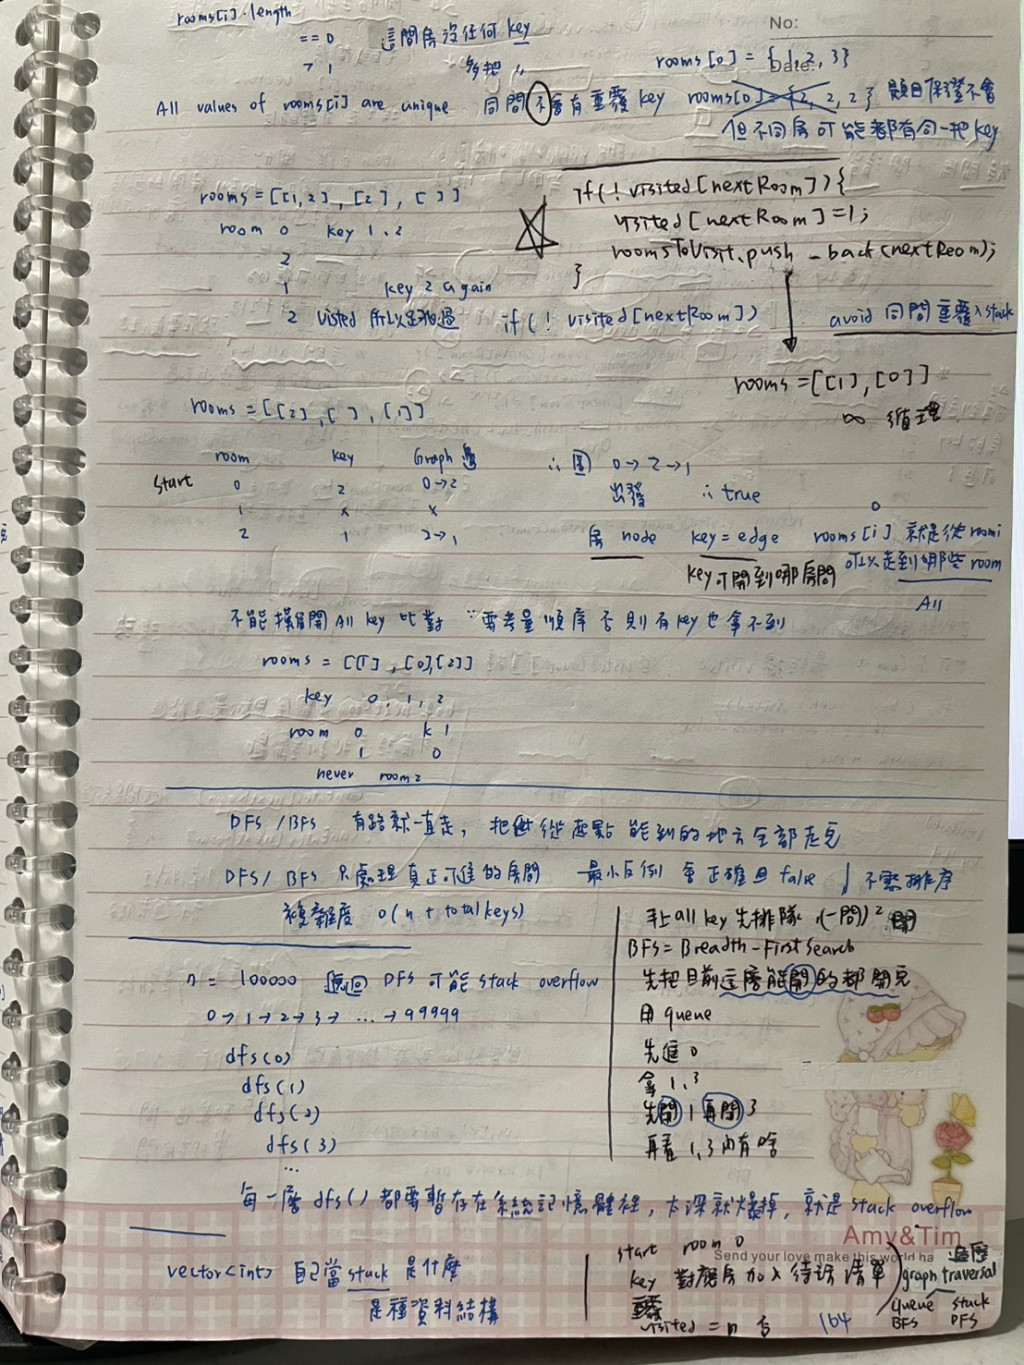 rooms[i].length
== 0 這間房沒任何 key
> 1 多把 "
No:
Date:
rooms[0] = {1, 2, 3}
All values of rooms[i] are unique 同間不會有重覆 key rooms[0] = {2, 2, 2} 題目保證不會
但不同房可能都有同一把 key
rooms = [[1,2], [2], [ ]]
room 0 key 1, 2
2
1 key 2 again
2 visted 所以是跳過 if ( ! visited [nextRoom])
if ( ! visited [nextRoom]) {
visited [nextRoom] = 1;
roomsToVisit.push_back(nextRoom);
}
avoid 同間重覆入 stack
rooms = [[1], [0]]
∞ 循環
rooms = [[2], [ ], [1]]
room key Graph 邊
start 0 2 0→2
1 x x
2 1 2→1
∴ 圖 0→2→1
出發 ∴ true
房 node key = edge
key 可開到哪房間
0
rooms[i] 就是從 room i
可以走到哪些 room
All
不能 All key 比對 ∵需考量順序否則有key也拿不到
rooms = [[1], [0],[2]]
key 0, 1, 2
room 0 k 1
1 0
never room 2
DFS / BFS 有路就一直走, 把從起點能到的地方全部走完
DFS / BFS 只處理真正可進的房間 最小反例 會正確回 false 不需排序
複雜度 O(n + total keys)
n = 100000 遞迴 DFS 可能 stack overflow
0→1→2→3→ ... →99999
dfs(0)
dfs(1)
dfs(2)
dfs(3)
...
all key 先排隊 (一間)² 開
BFS = Breadth-First Search
先把目前這房能開的都開完
用 queue
先進 0
拿 1, 3
先開 1 再開 3
再看 1, 3 內有啥
每一層 dfs( ) 都要暫存在系統記憶體裡, 太深就爆掉, 就是 stack overflow
vector<int> 自己當 stack 是什麼
是種資料結構
Amy&Tim
Send your love make this world ha
start room 0
key 對應房加入待訪清單
visited = n 否
遍歷
graph traversal
queue stack
BFS DFS
164